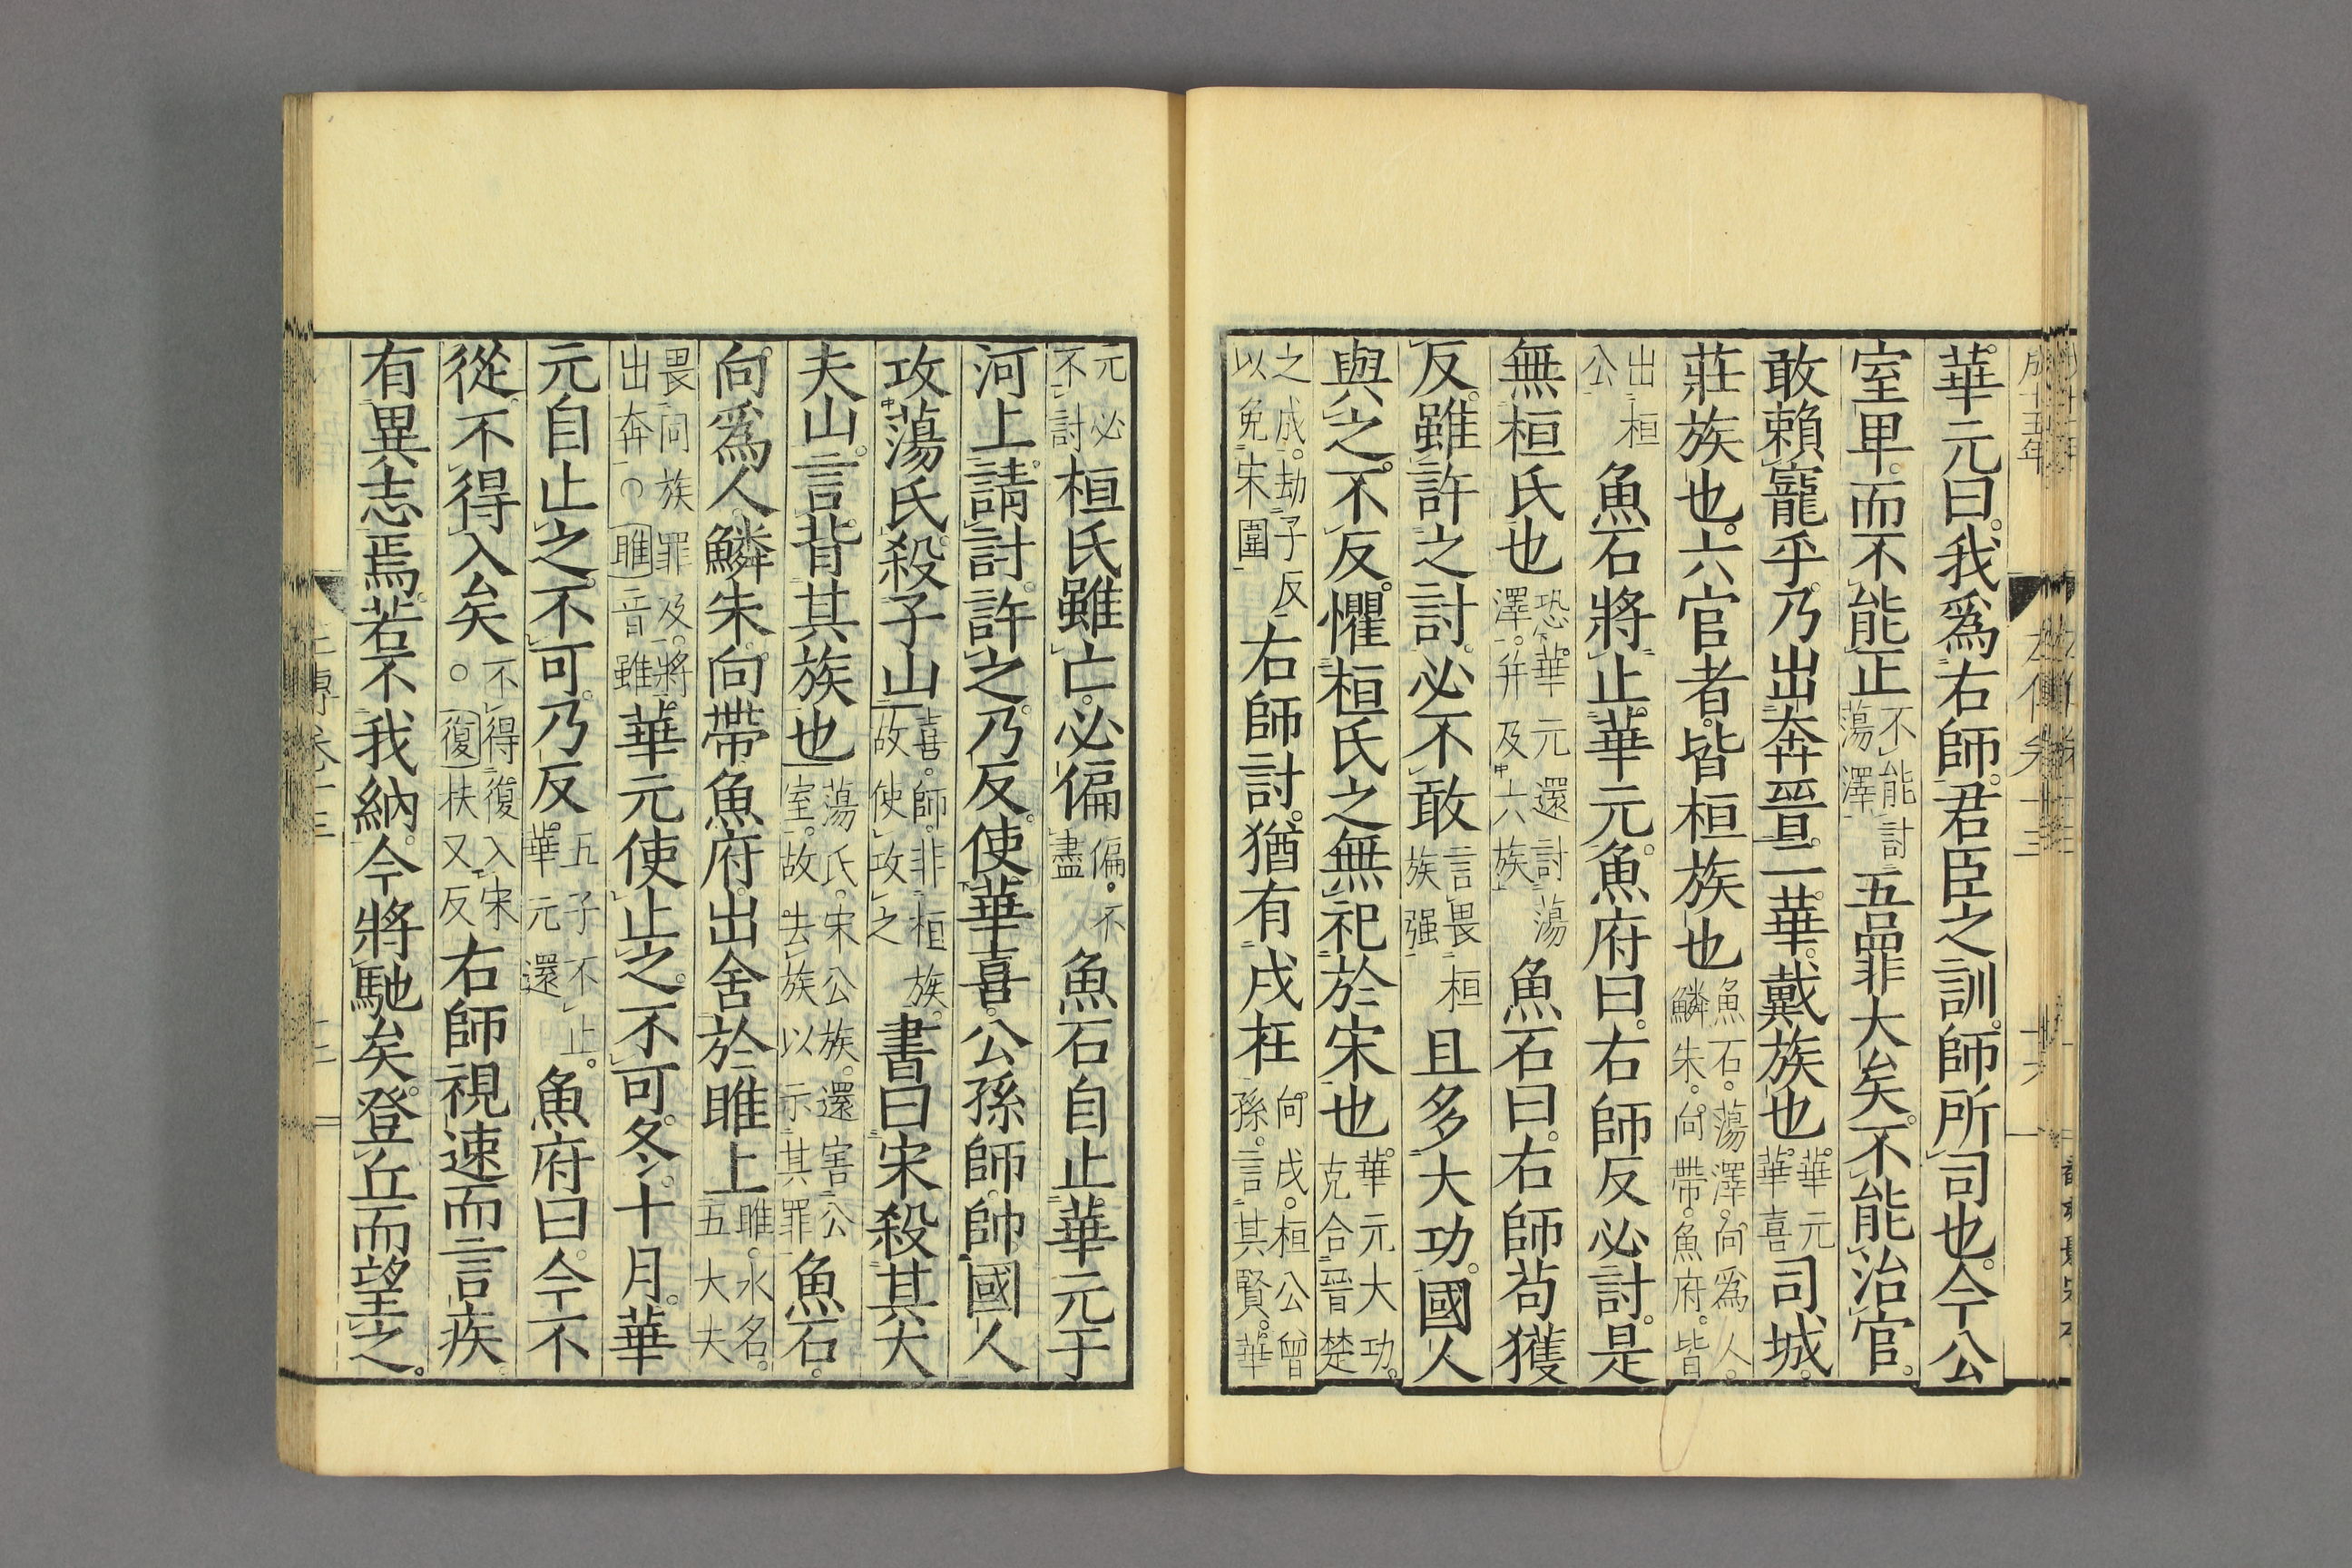 成十五年
華元曰我爲右師君臣之訓師所司也今公
室卑而不能正不能討蕩澤吾罪大矣不能治官
敢賴寵乎乃出奔晉二華戴族也華元華喜司城
莊族也六官者皆桓族也魚石蕩澤向爲人鱗朱向帶魚府皆
出桓公魚石將止華元魚府曰右師反必討是
無桓氏也恐華元還討蕩澤幷及六族魚石曰右師茍獲
反雖許之討必不敢言畏桓族强且多大功國人
與之不反懼桓氏之無祀於宋也華元大功克合晉楚
之成劫子反以免宋圍右師討猶有戌在向戌桓公曾孫言其賢華
元必不討桓氏雖亡必偏偏不盡魚石自止華元于
河上請討許之乃反使華喜公孫師帥國人
攻蕩氏殺子山喜師非桓族故使攻之書曰宋殺其大
夫山言背其族也蕩氏宋公族還害公室故去族以示其罪魚石
向爲人鱗朱向帶魚府出舍於睢上睢水名五大夫
畏同族罪及將出奔○睢音雖華元使止之不可冬十月華
元自止之不可乃反五子不止華元還魚府曰今不
從不得入矣不得復入宋○復扶又反右師視速而言疾
有異志焉若不我納今將馳矣登丘而望之